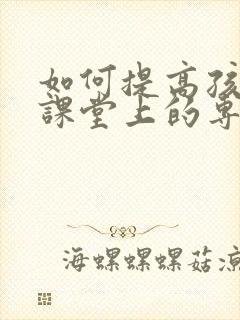 如何提高孩
課堂上的專
海螺螺螺菇涼